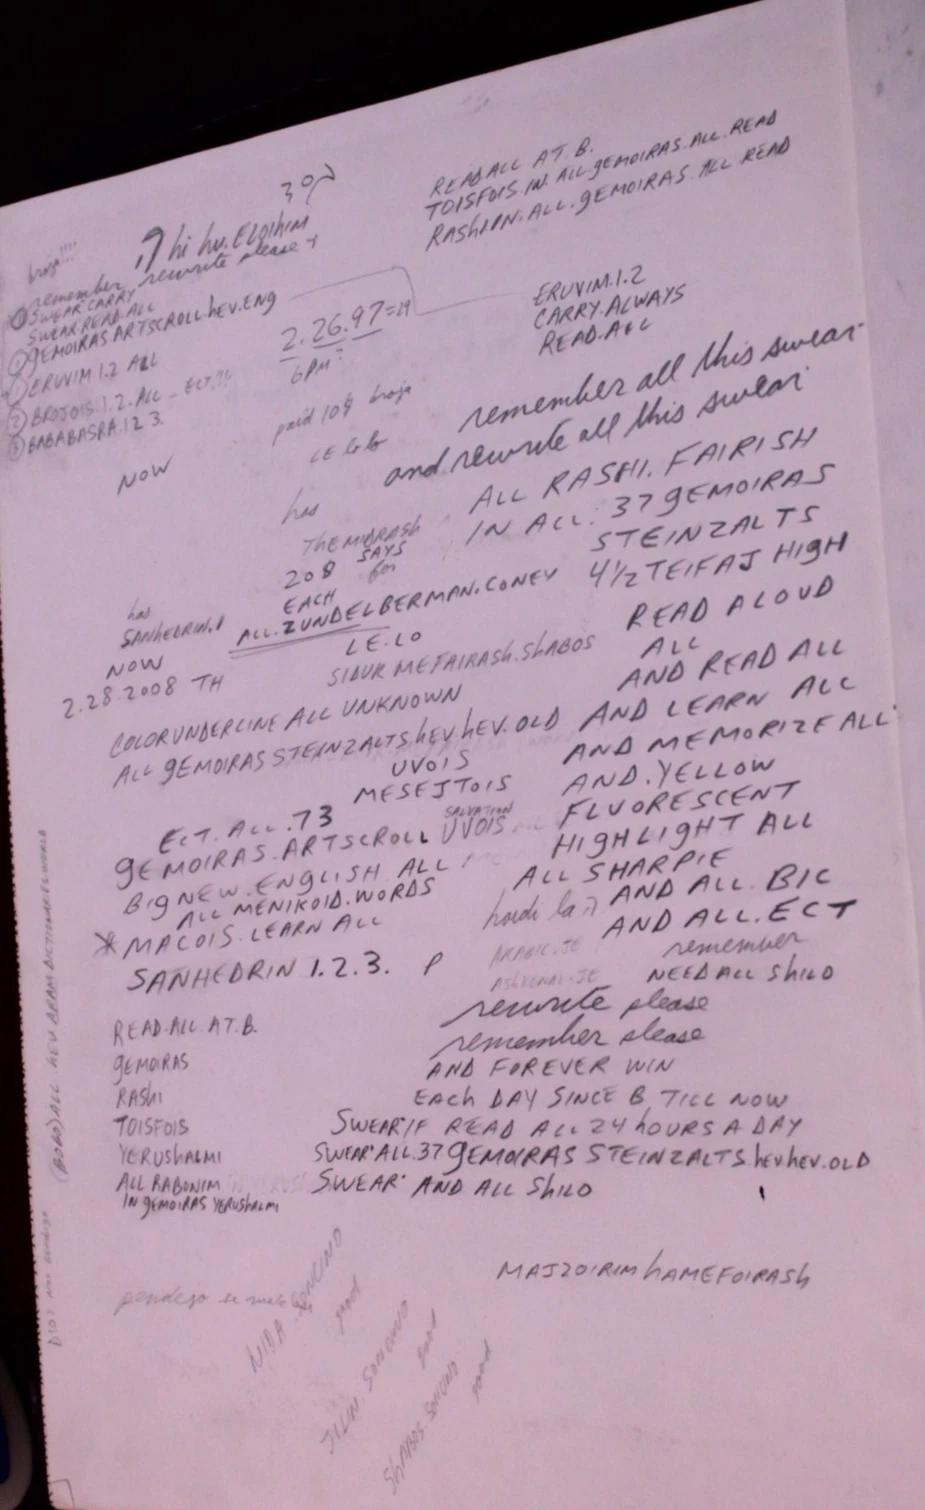 READ ALL AT.B.
TOISFOIS.IN.ALL.gEMOIRAS.ALL.READ
RASHI.IN.ALL.gEMOIRAS.ALL READ
hi hv.ELOIhIM
remember rewrite please
SWEAR CARRY
SWEAR.READ.ALL
gEMOIRAS ARTSCROLL.hEV.ENG
① ERUVIM.1.2 ALL
② BROJOIS.1.2.ALL
③ BABABASRA.1 2 3.
2.26.97=29
6PM?
ERUVIM.1.2
CARRY.ALWAYS
READ.ALL
paid 10$ broja
LE lo lo
NOW
remember all this swear
and rewrite all this swear
has
ThE MIDRASH
208 SAYS
EACH for
ALL.ZUNDELBERMAN.CONEY
LE.LO
SIDUR MEFAIRASH.ShABOS
ALL RASHI. FAIRISH
IN ALL. 37 gEMOIRAS
STEINZALTS
4½ TEIFAJ HIGH
READ ALOUD
ALL
AND READ ALL
AND LEARN ALL
AND MEMORIZE ALL
AND.YELLOW
FLUORESCENT
HIGHLIGHT ALL
ALL SHARPIE
AND ALL. BIC
AND ALL.ECT
remember
NEED ALL ShILO
has
SANHEDRIN.1
NOW
2.28.2008 TH
COLORUNDERLINE ALL UNKNOWN
ALL gEMOIRAS STEINZALTS hEV hEV.OLD
UVOIS
MESEJTOIS
ECT. ALL. 73
SALVATION
gEMOIRAS.ARTSCROLL UVOIS
BIg NEW.ENGLISH ALL
ALL MENIKOID.WORDS
MACOIS.LEARN ALL
SANHEDRIN 1.2.3. P
ARABIC.JE
ASHKENAZ.JE
rewrite please
remember please
AND FOREVER WIN
EACH DAY SINCE B TILL NOW
SWEAR IF READ ALL 24 hOURS A DAY
SWEAR ALL.37 gEMOIRAS STEINZALTS.hEVhEV.OLD
SWEAR AND ALL ShILO
READ.ALL.AT.B.
gEMOIRAS
RASHI
TOISFOIS
YERUShALMI
ALL RABONIM
IN gEMOIRAS YERUShALMI
MAJZOIRIM hAMEFOIRASh
pendejo se
NIDA SONCINO
good
SONCINO
good
ShABOS.SONCINO
good